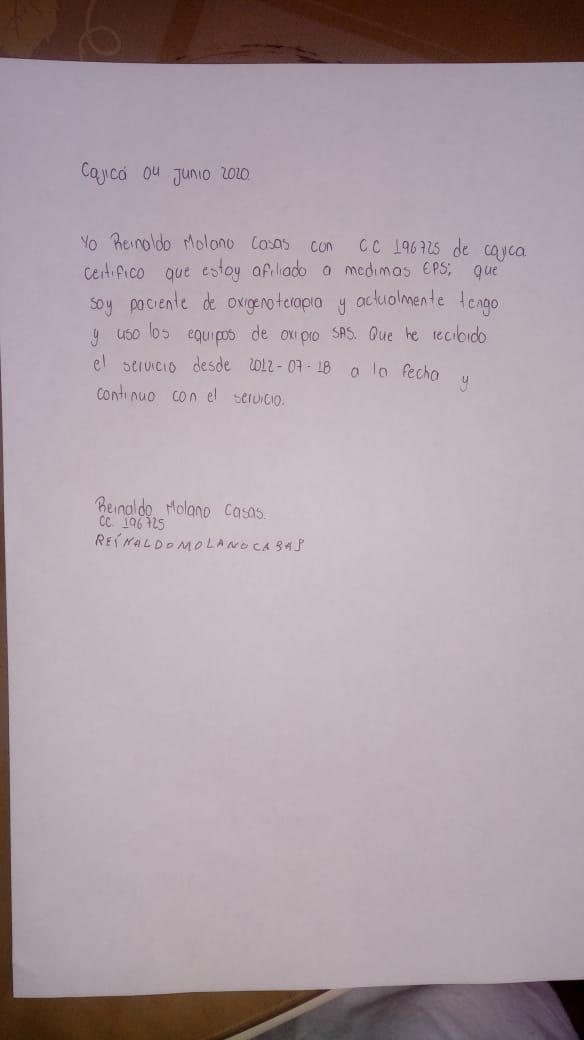 Cajicá 04 Junio 2020.
Yo Reinaldo Molano Casas con C.C 196725 de cajica
certifico que estoy afiliado a medimas EPS; que
soy paciente de oxigenoterapia y actualmente tengo
y uso los equipos de oxipro SAS. Que he recibido
el servicio desde 2012-07-18 a la fecha y
continuo con el servicio.
Reinaldo Molano Casas.
CC. 196725
REÍNALDOMOLANOCASAS